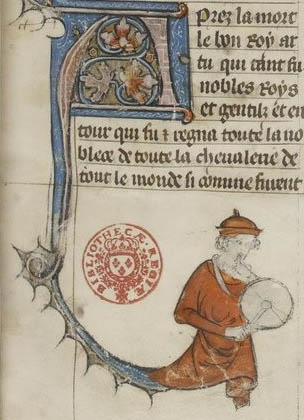 Aprez la mort
le bon Roy ar
tu qui tant fu
nobles Roys
et gentilz et en
tour qui fu & regna toute la no
blece de toute la cheualerie de
tout le monde si comme furent
BIBLIOTHECÆ REGIÆ